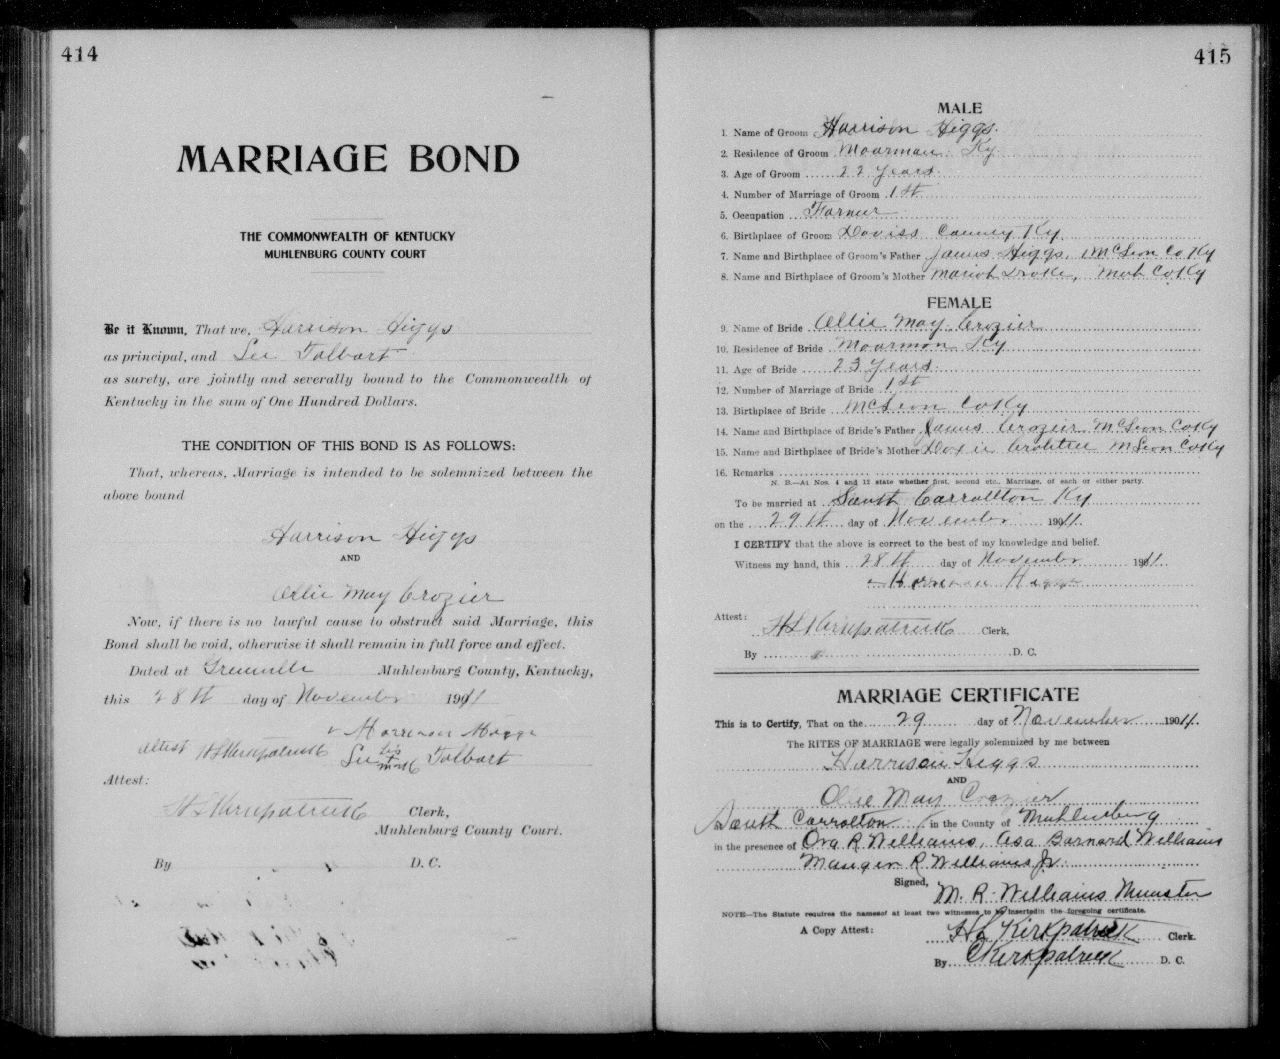 414
MARRIAGE BOND
THE COMMONWEALTH OF KENTUCKY
MUHLENBURG COUNTY COURT
Be it Known, That we, Harrison Higgs
as principal, and Lee Tolbart
as surety, are jointly and severally bound to the Commonwealth of
Kentucky in the sum of One Hundred Dollars.
THE CONDITION OF THIS BOND IS AS FOLLOWS:
That, whereas, Marriage is intended to be solemnized between the
above bound
Harrison Higgs
AND
Ollie May Crozier
Now, if there is no lawful cause to obstruct said Marriage, this
Bond shall be void, otherwise it shall remain in full force and effect.
Dated at Greenville Muhlenburg County, Kentucky,
this 28th day of November 1911
Harrison Higgs
Attest H L Kirkpatrick Lee his x mark Tolbart
Attest:
H L Kirkpatrick Clerk,
Muhlenburg County Court.
By D. C.
415
MALE
1. Name of Groom Harrison Higgs.
2. Residence of Groom Moorman Ky
3. Age of Groom 22 years.
4. Number of Marriage of Groom 1st
5. Occupation Farmer
6. Birthplace of Groom Daviss County Ky
7. Name and Birthplace of Groom's Father James Higgs, McLean Co Ky
8. Name and Birthplace of Groom's Mother Drake, Muh Co Ky
FEMALE
9. Name of Bride Ollie May Crozier
10. Residence of Bride Moorman Ky
11. Age of Bride 23 years.
12. Number of Marriage of Bride 1st
13. Birthplace of Bride McLean Co Ky
14. Name and Birthplace of Bride's Father James Crozier McLean Co Ky
15. Name and Birthplace of Bride's Mother Doxie Crabtree McLean Co Ky
16. Remarks
N. B.—At Nos. 4 and 12 state whether first, second etc., Marriage, of each or either party.
To be married at South Carrollton Ky
on the 29th day of November 1911.
I CERTIFY that the above is correct to the best of my knowledge and belief.
Witness my hand, this 28th day of November 1911.
Harrison Higgs
Attest:
H L Kirkpatrick Clerk,
By D. C.
MARRIAGE CERTIFICATE
This is to Certify, That on the 29 day of November 1911.
The RITES OF MARRIAGE were legally solemnized by me between
Harrison Higgs
AND
Ollie May Crozier
South Carrolton in the County of Muhlenberg
in the presence of Ora R Williams, Asa Barnard Williams
R Williams Jr.
Signed, M. R. Williams Minister
NOTE—The Statute requires the names of at least two witnesses to be inserted in the foregoing certificate.
A Copy Attest: H L Kirkpatrick Clerk.
By C Kirkpatrick D. C.